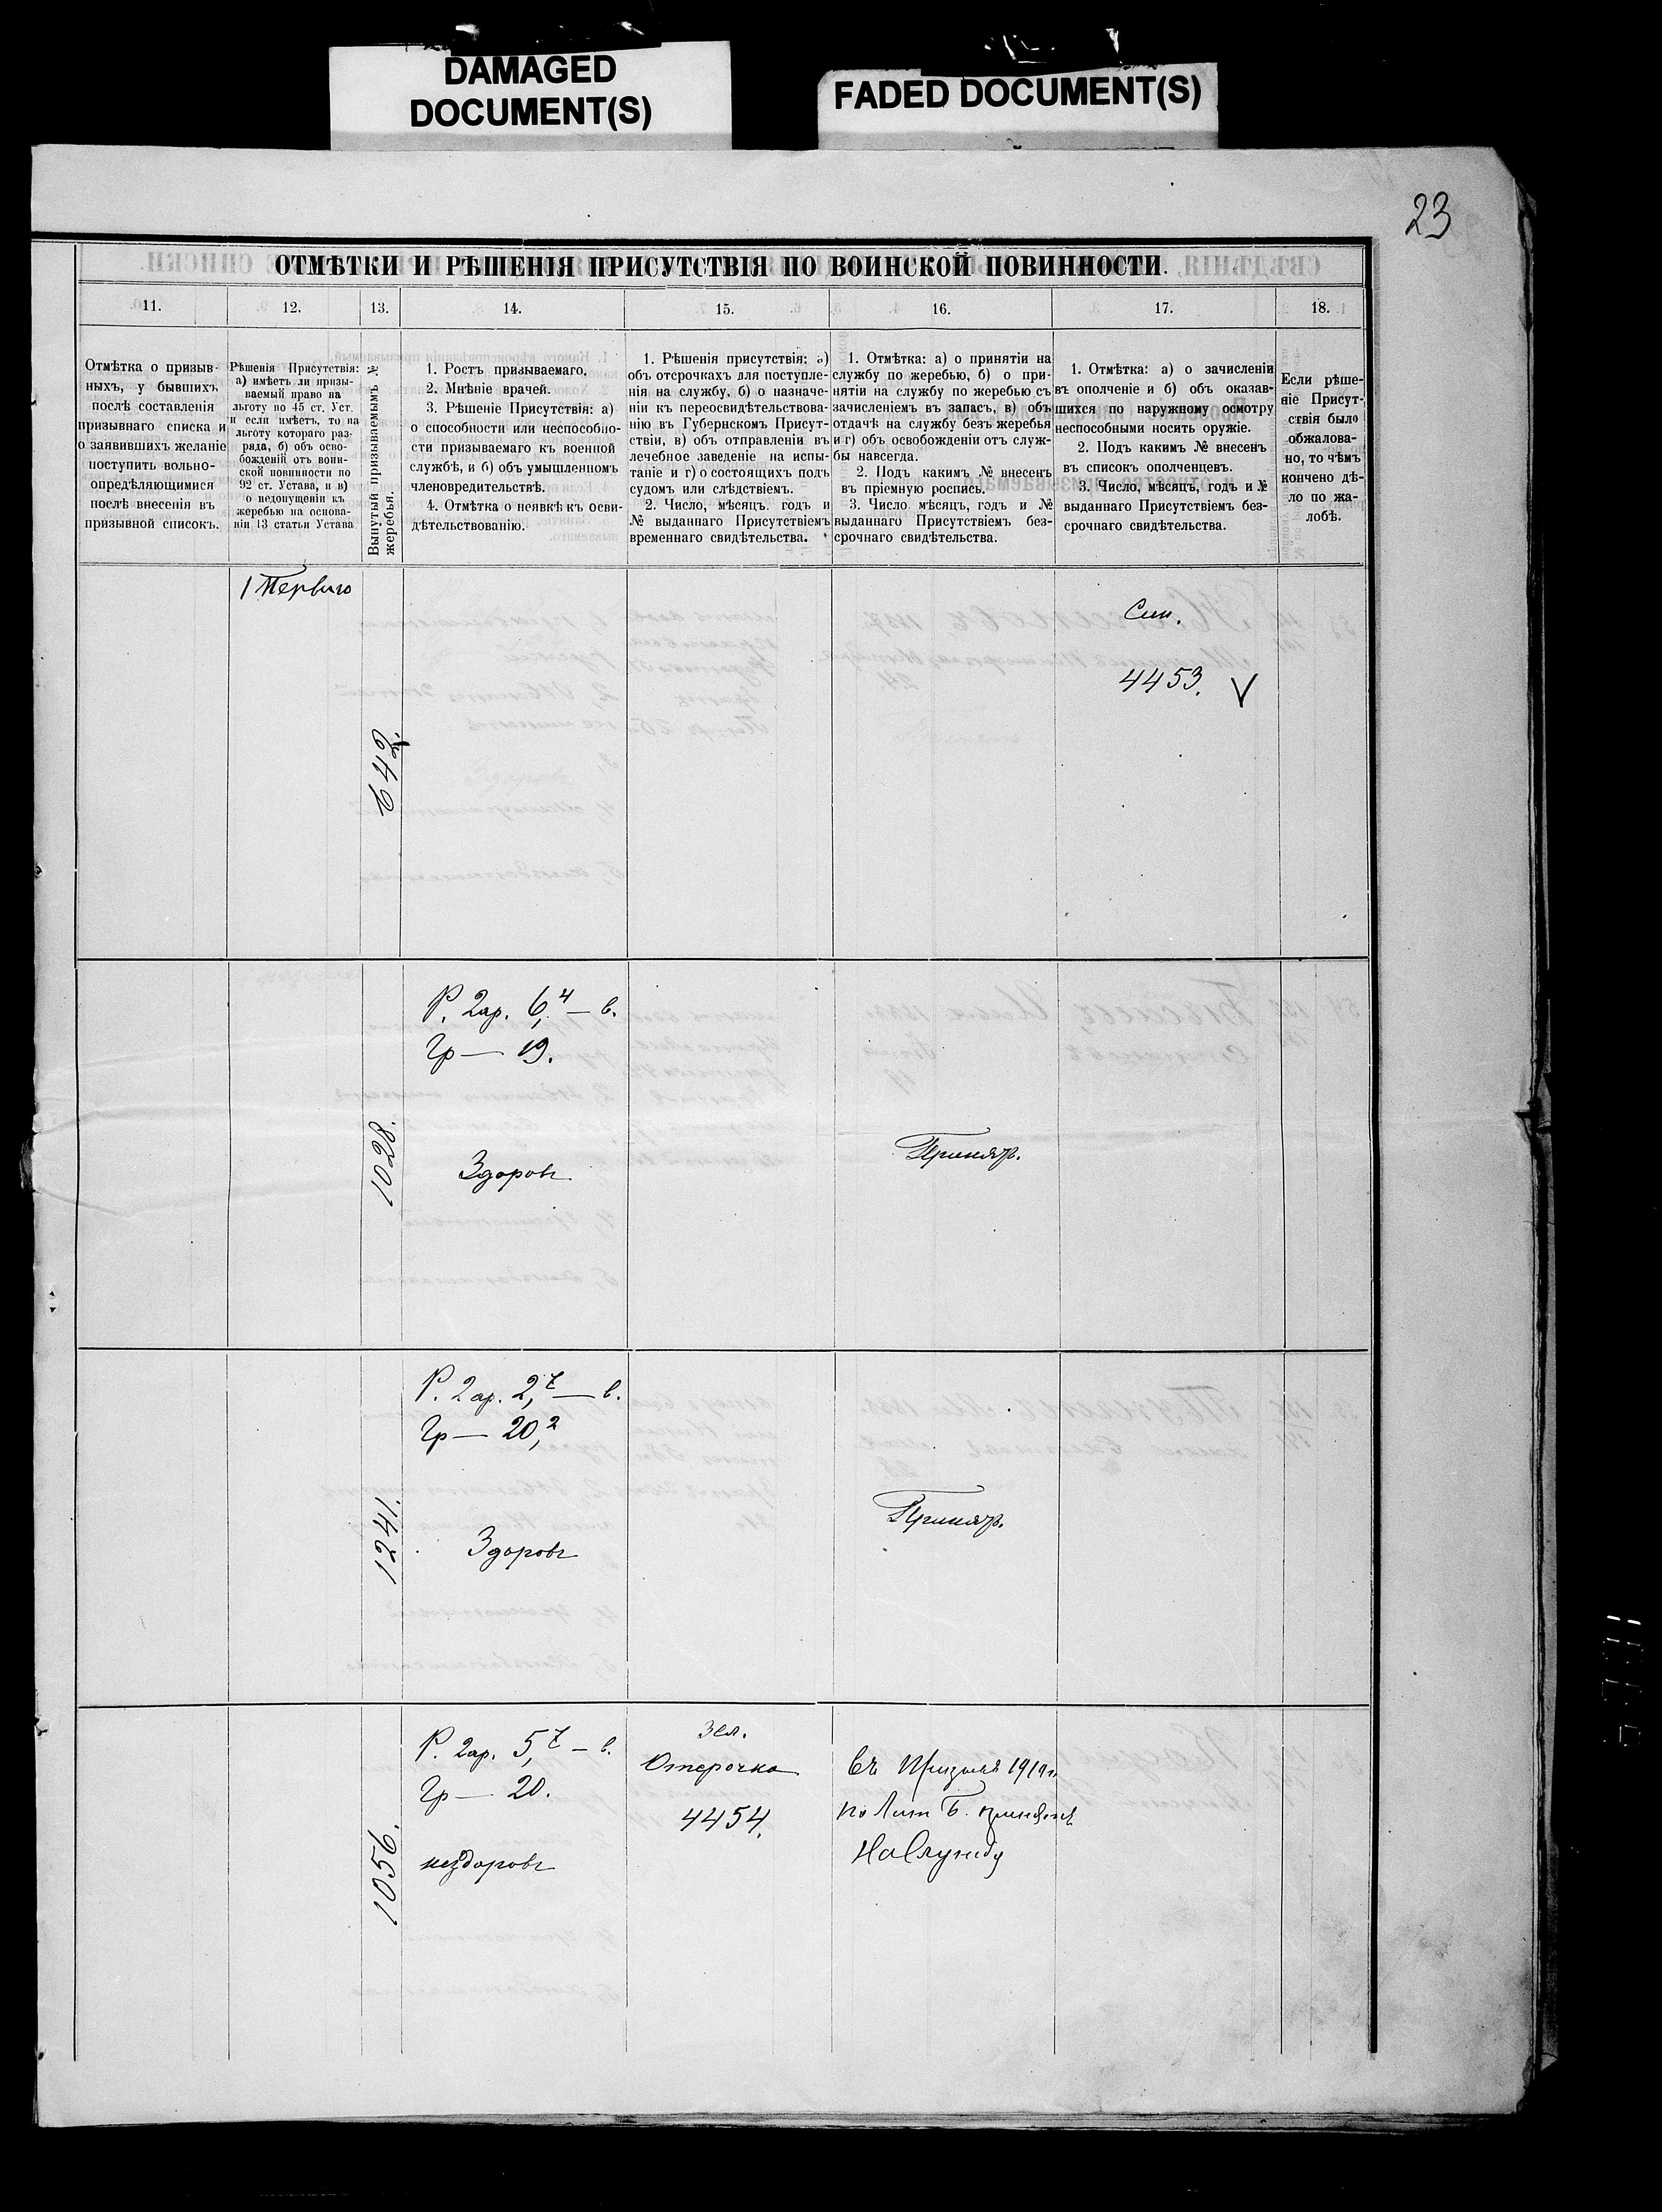 DAMAGED
DOCUMENT(S)
FADED DOCUMENT(S)
23
ОТМѢТКИ И РѢШЕНІЯ ПРИСУТСТВІЯ ПО ВОИНСКОЙ ПОВИННОСТИ.
11. 12. 13. 14. 15. 16. 17. 18.
Отмѣтка о призыв-
ныхъ, у бывшихъ
послѣ составленія
призывнаго списка и
о заявившихъ желаніе
поступить вольно-
опредѣляющимися
послѣ внесенія въ
призывной списокъ.
Рѣшенія Присутствія:
а) имѣетъ ли призы-
ваемый право на
льготу по 45 ст. Уст.
и если имѣетъ, то на
льготу котораго раз-
ряда, б) объ осво-
божденій отъ воин-
ской повинности по
92 ст. Устава, и в)
о недопущеніи къ
жеребью на основа-
ніи 13 статьи Устава
Вынутый призываемымъ №
жеребья.
1. Ростъ призываемаго.
2. Мнѣніе врачей.
3. Рѣшеніе Присутствія: а)
о способности или неспособно-
сти призываемаго къ военной
службѣ, и б) объ умышленномъ
членовредительствѣ.
4. Отмѣтка о неявкѣ къ осви-
дѣтельствованію.
1. Рѣшенія присутствія: а)
объ отсрочкахъ для поступле-
нія на службу, б) о назначе-
ніи къ переосвидѣтельствова-
нію въ Губернскомъ Присут-
ствіи, в) объ отправленіи въ
лечебное заведеніе на испы-
таніе и г) о состоящихъ подъ
судомъ или слѣдствіемъ.
2. Число, мѣсяцъ. годъ и
№ выданнаго Присутствіемъ
временнаго свидѣтельства.
1. Отмѣтка: а) о принятіи на
службу по жеребью, б) о при-
нятіи на службу по жеребью съ
зачисленіемъ въ запасъ, в) объ
отдачѣ на службу безъ жеребья
и г) объ освобожденіи отъ служ-
бы навсегда.
2. Подъ какимъ № внесенъ
въ пріемную роспись.
3. Число мѣсяцъ, годъ и №
выданнаго Присутствіемъ без-
срочнаго свидѣтельства.
1. Отмѣтка: а) о зачисленіи
въ ополченіе и б) объ оказав-
шихся по наружному осмотру
неспособными носить оружіе.
2. Подъ какимъ № внесенъ
въ список ополченцевъ.
3. Число, мѣсяцъ, годъ и №
выданнаго Присутствіемъ без-
срочнаго свидѣтельства.
Если рѣше-
ніе Присут-
ствія было
обжалова-
но, то чѣмъ
кончено дѣ-
ло по жа-
лобѣ.
1 Перваго
642.
4453. V
Р. 2ар. 6,4 — в.
Гр — 19.
1028.
Здоровъ
Принятъ.
Р. 2ар. 2,7 — в.
Гр — 20,2
1241.
Здоровъ
Принятъ.
Р. 2ар. 5,7 — в.
Гр — 20.
1056.
нездоровъ
Отсрочка
4454.
Въ Призывъ
по Лит Б. принятъ
На Службу